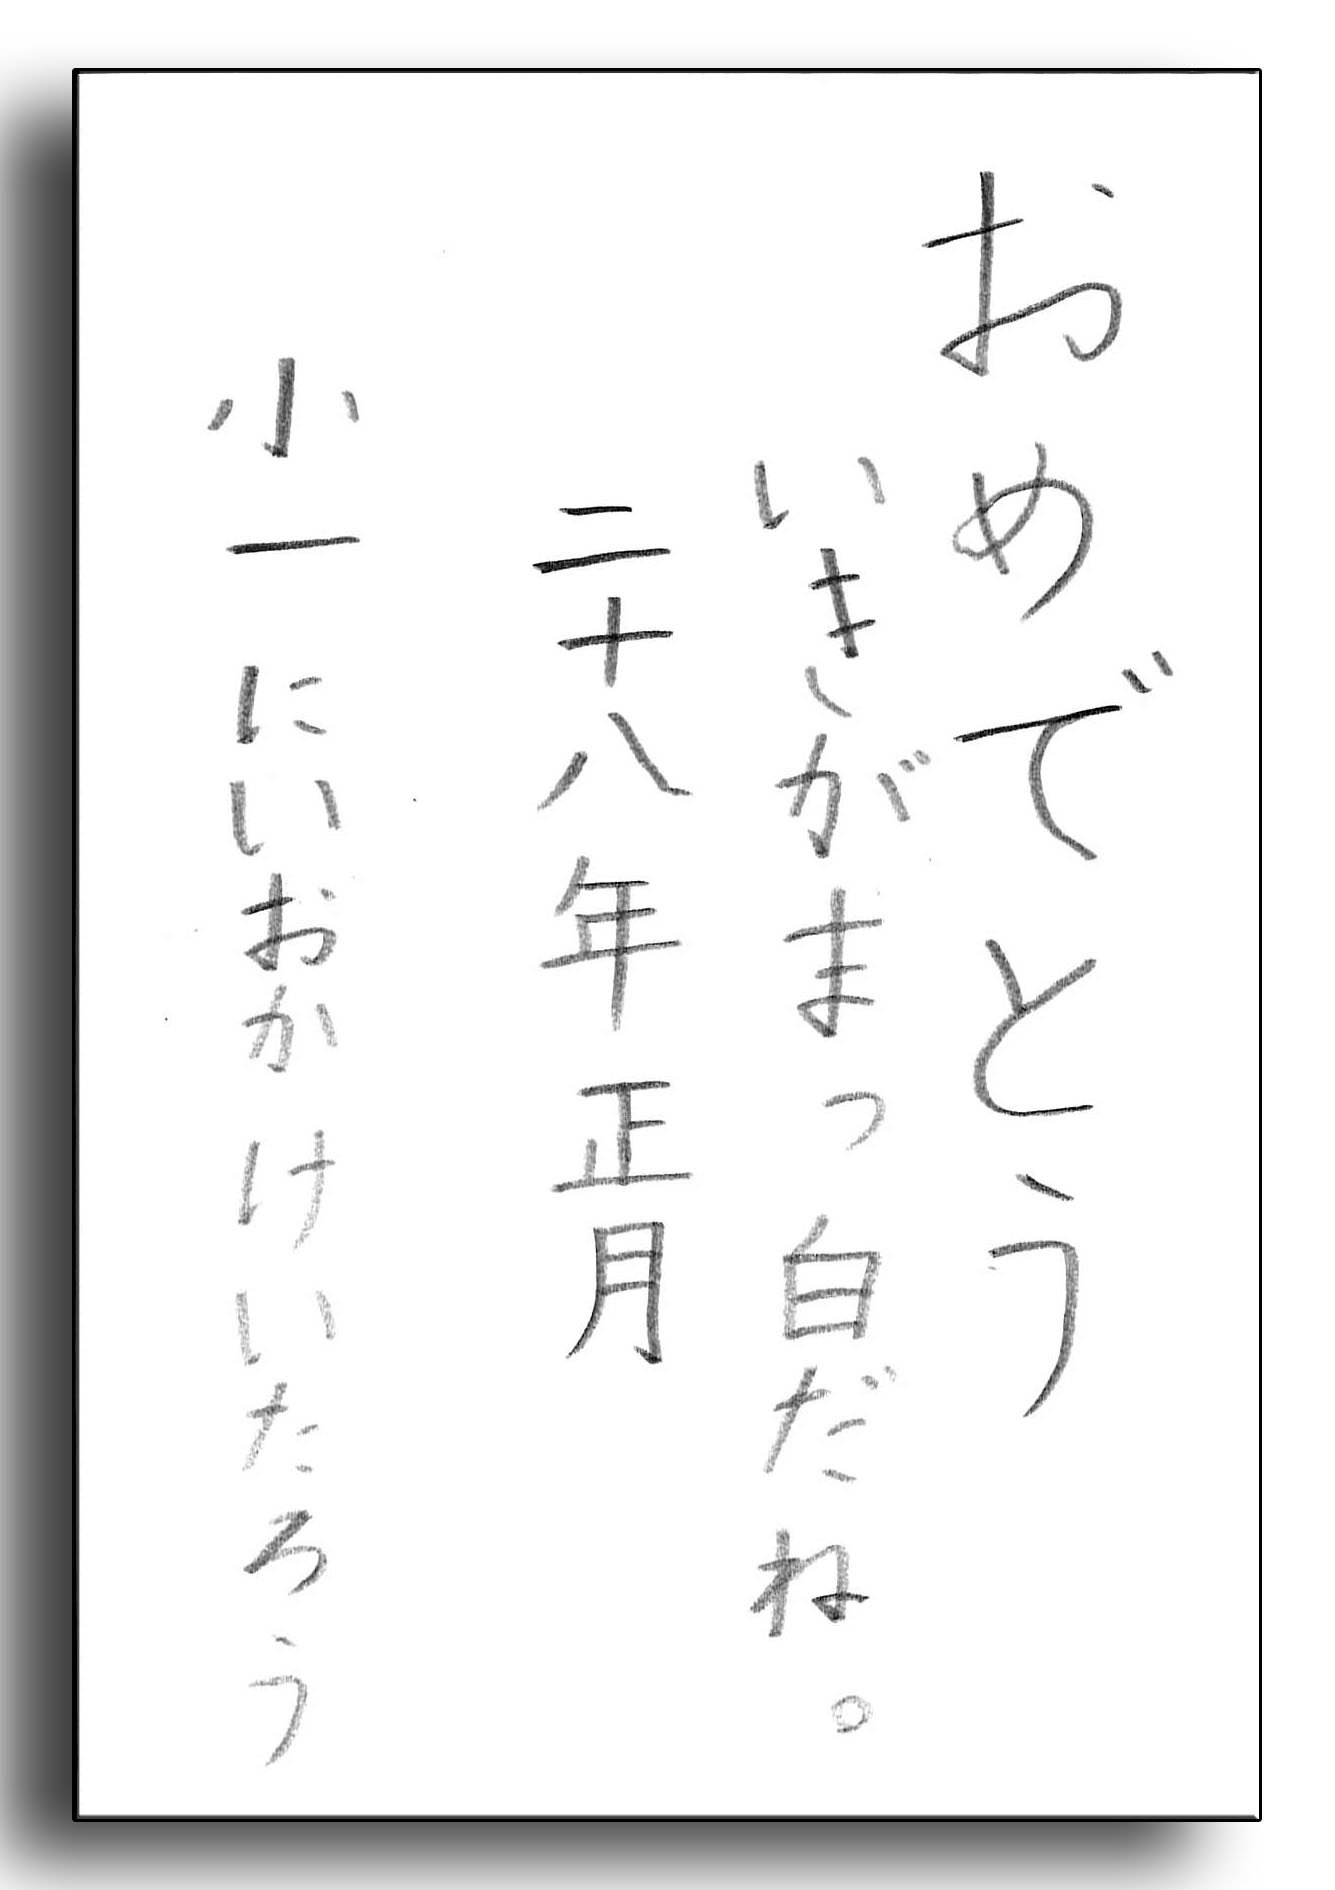 おめでとう
いきがまっ白だね。
二十八年正月
小一 にいおか けいたろう